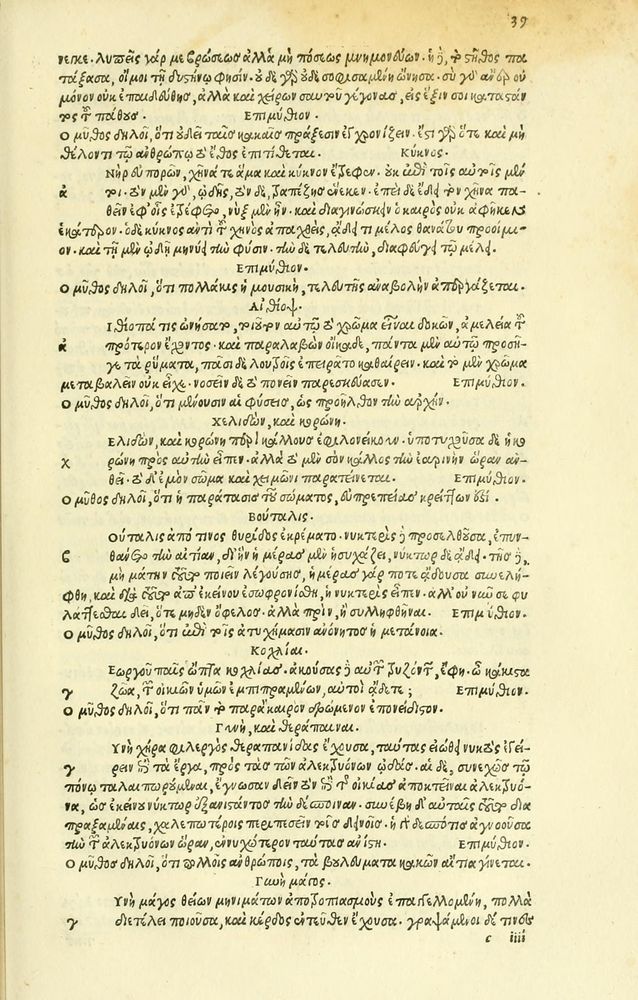 39
νεικε. λυπεῖς γάρ με βρώσεως ἀλλὰ μὴ πόσεως μνημονεύων. ἡ δὲ, τὸ στῆθος πα
τάξασα, οἴμοι τῇ δυστήνῳ φησίν. οὐδὲν γὰρ οὐδὲ σοφισαμένη ὤνησα. σὺ γὰρ ἄνερ οὐ
μόνον οὐκ ἐπαιδεύθης, ἀλλὰ καὶ χείρων σαυτοῦ γέγονας, εἰς ἕξιν σοι καταστάν
τος τοῦ πάθους. Επιμύθιον.
Ο μῦθος δηλοῖ, ὅτι οὐ δεῖ ταῖς κακαῖς πράξεσιν ἐγχρονίζειν. ἔστι γὰρ ὅτε καὶ μὴ
θέλοντι τῷ ἀνθρώπῳ τὸ ἔθος ἐπιτίθεται. Κύκνος.
Νὴρ εὐπορῶν, χῆνά τε ἅμα καὶ κύκνον ἔτρεφεν. οὐκ ἐπὶ τοῖς αὐτοῖς μέν
α τοι. τὸν μὲν γὰρ, ᾠδῆς, τὸν δὲ, τραπέζης ἕνεκεν. ἐπεὶ δὲ ἔδει τὸν χῆνα πα-
θεῖν ἐφ' οἷς ἐτρέφετο, νὺξ μὲν ἦν. καὶ διαγινώσκειν ὁ καιρὸς οὐκ ἀφῆκεν
ἑκάτερον. ὁ δὲ κύκνος ἀντὶ τοῦ χηνὸς ἀπαχθεὶς, ᾄδει τι μέλος θανάτου προοίμι-
ον. καὶ τῇ μὲν ᾠδῇ μηνύει τὴν φύσιν. τὴν δὲ τελευτὴν, διαφεύγει τῷ μέλει.
Επιμύθιον.
Ο μῦθος δηλοῖ, ὅτι πολλάκις ἡ μουσικὴ, τελευτῆς ἀναβολὴν ἀπεργάζεται.
Αἰθίοψ.
Ιθίοπά τις ὠνήσατο, τοιοῦτον αὐτῷ τὸ χρῶμα εἶναι δοκῶν, ἀμελείᾳ τοῦ
α πρότερον ἔχοντος. καὶ παραλαβὼν οἴκαδε, πάντα μὲν αὐτῷ προσῆ-
γε τὰ ῥύμματα, πᾶσι δὲ λουτροῖς ἐπειρᾶτο καθαίρειν. καὶ τὸ μὲν χρῶμα
μεταβαλεῖν οὐκ εἶχε. νοσεῖν δὲ τὸ πονεῖν παρεσκεύασεν. Επιμύθιον.
Ο μῦθος δηλοῖ, ὅτι μένουσιν αἱ φύσεις, ὡς προῆλθον τὴν ἀρχήν.
Χελιδὼν, καὶ κορώνη.
Ελιδὼν, καὶ κορώνη περὶ κάλλους ἐφιλονείκουν. ὑποτυχοῦσα δὲ ἡ κο
χ ρώνη πρὸς αὐτὴν εἶπεν. ἀλλὰ τὸ μὲν σὸν κάλλος τὴν ἐαρινὴν ὥραν ἀν-
θεῖ. τὸ δὲ ἐμὸν σῶμα καὶ χειμῶνι παρατείνεται. Επιμύθιον.
Ο μῦθος δηλοῖ, ὅτι ἡ παράτασις τοῦ σώματος, εὐπρεπείας κρείττων ἐστί.
Βούταλις.
Ούταλις ἀπό τινος θυρίδος ἐκρέματο. νυκτερὶς δὲ προσελθοῦσα, ἐπυν-
β θάνετο τὴν αἰτίαν, δι' ἣν ἡμέρας μὲν ἡσυχάζει, νύκτωρ δὲ ᾄδει. τῆς δὲ,
μὴ μάτην τοῦτο ποιεῖν λεγούσης, ἡμέρας γάρ ποτε ᾄδουσα συνελή-
φθη, καὶ διὰ τοῦτο ἀπ' ἐκείνου ἐσωφρονίσθη, ἡ νυκτερὶς εἶπεν. ἀλλ' οὐ νῦν σε φυ
λάττεσθαι δεῖ, ὅτε μηδὲν ὄφελος. ἀλλὰ πρὶν, ἢ συλληφθῆναι. Επιμύθιον.
Ο μῦθος δηλοῖ, ὅτι ἐπὶ τοῖς ἀτυχήμασιν ἀνόνητος ἡ μετάνοια.
Κοχλίαι.
Εωργοῦ παῖς ὤπτα κοχλίας. ἀκούσας δὲ αὐτῶν τρυζόντων, ἔφη. ὦ κάκιστα
γ ζῶα, τῶν οἰκιῶν ὑμῶν ἐμπιπραμένων, αὐτοὶ ᾄδετε; Επιμύθιον.
Ο μῦθος δηλοῖ, ὅτι πᾶν τὸ παρὰ καιρὸν δρώμενον ἐπονείδιστον.
Γυνὴ, καὶ θεράπαιναι.
Υνὴ χήρα φιλεργὸς θεραπαινίδας ἔχουσα, ταύτας εἰώθει νυκτὸς ἐγεί-
γ ρειν ἐπὶ τὰ ἔργα, πρὸς τὰς τῶν ἀλεκτρυόνων ᾠδάς. αἱ δὲ, συνεχῶς τῷ
πόνῳ ταλαιπωρούμεναι, ἔγνωσαν δεῖν τὸν ἐπὶ τῆς οἰκίας ἀποκτεῖναι ἀλεκτρυό-
να, ὡς ἐκείνου νύκτωρ ἐξανιστάντος τὴν δέσποιναν. συνέβη δ' αὐταῖς τοῦτο δια
πραξαμέναις, χαλεπωτέροις περιπεσεῖν τοῖς δεινοῖς. ἡ γὰρ δεσπότις ἀγνοοῦσα
τὴν τῶν ἀλεκτρυόνων ὥραν, ἐννυχώτερον ταύτας ἀνίστη. Επιμύθιον.
Ο μῦθος δηλοῖ, ὅτι πολλοῖς ἀνθρώποις, τὰ βουλεύματα κακῶν αἴτια γίνεται.
Γυνὴ μάγος.
Υνὴ μάγος θείων μηνιμάτων ἀποτροπιασμοὺς ἐπαγγελλομένη, πολλὰ
γ διετέλει ποιοῦσα, καὶ κέρδος ἐντεῦθεν ἔχουσα. γραψάμενοι δέ τινες
c iiii